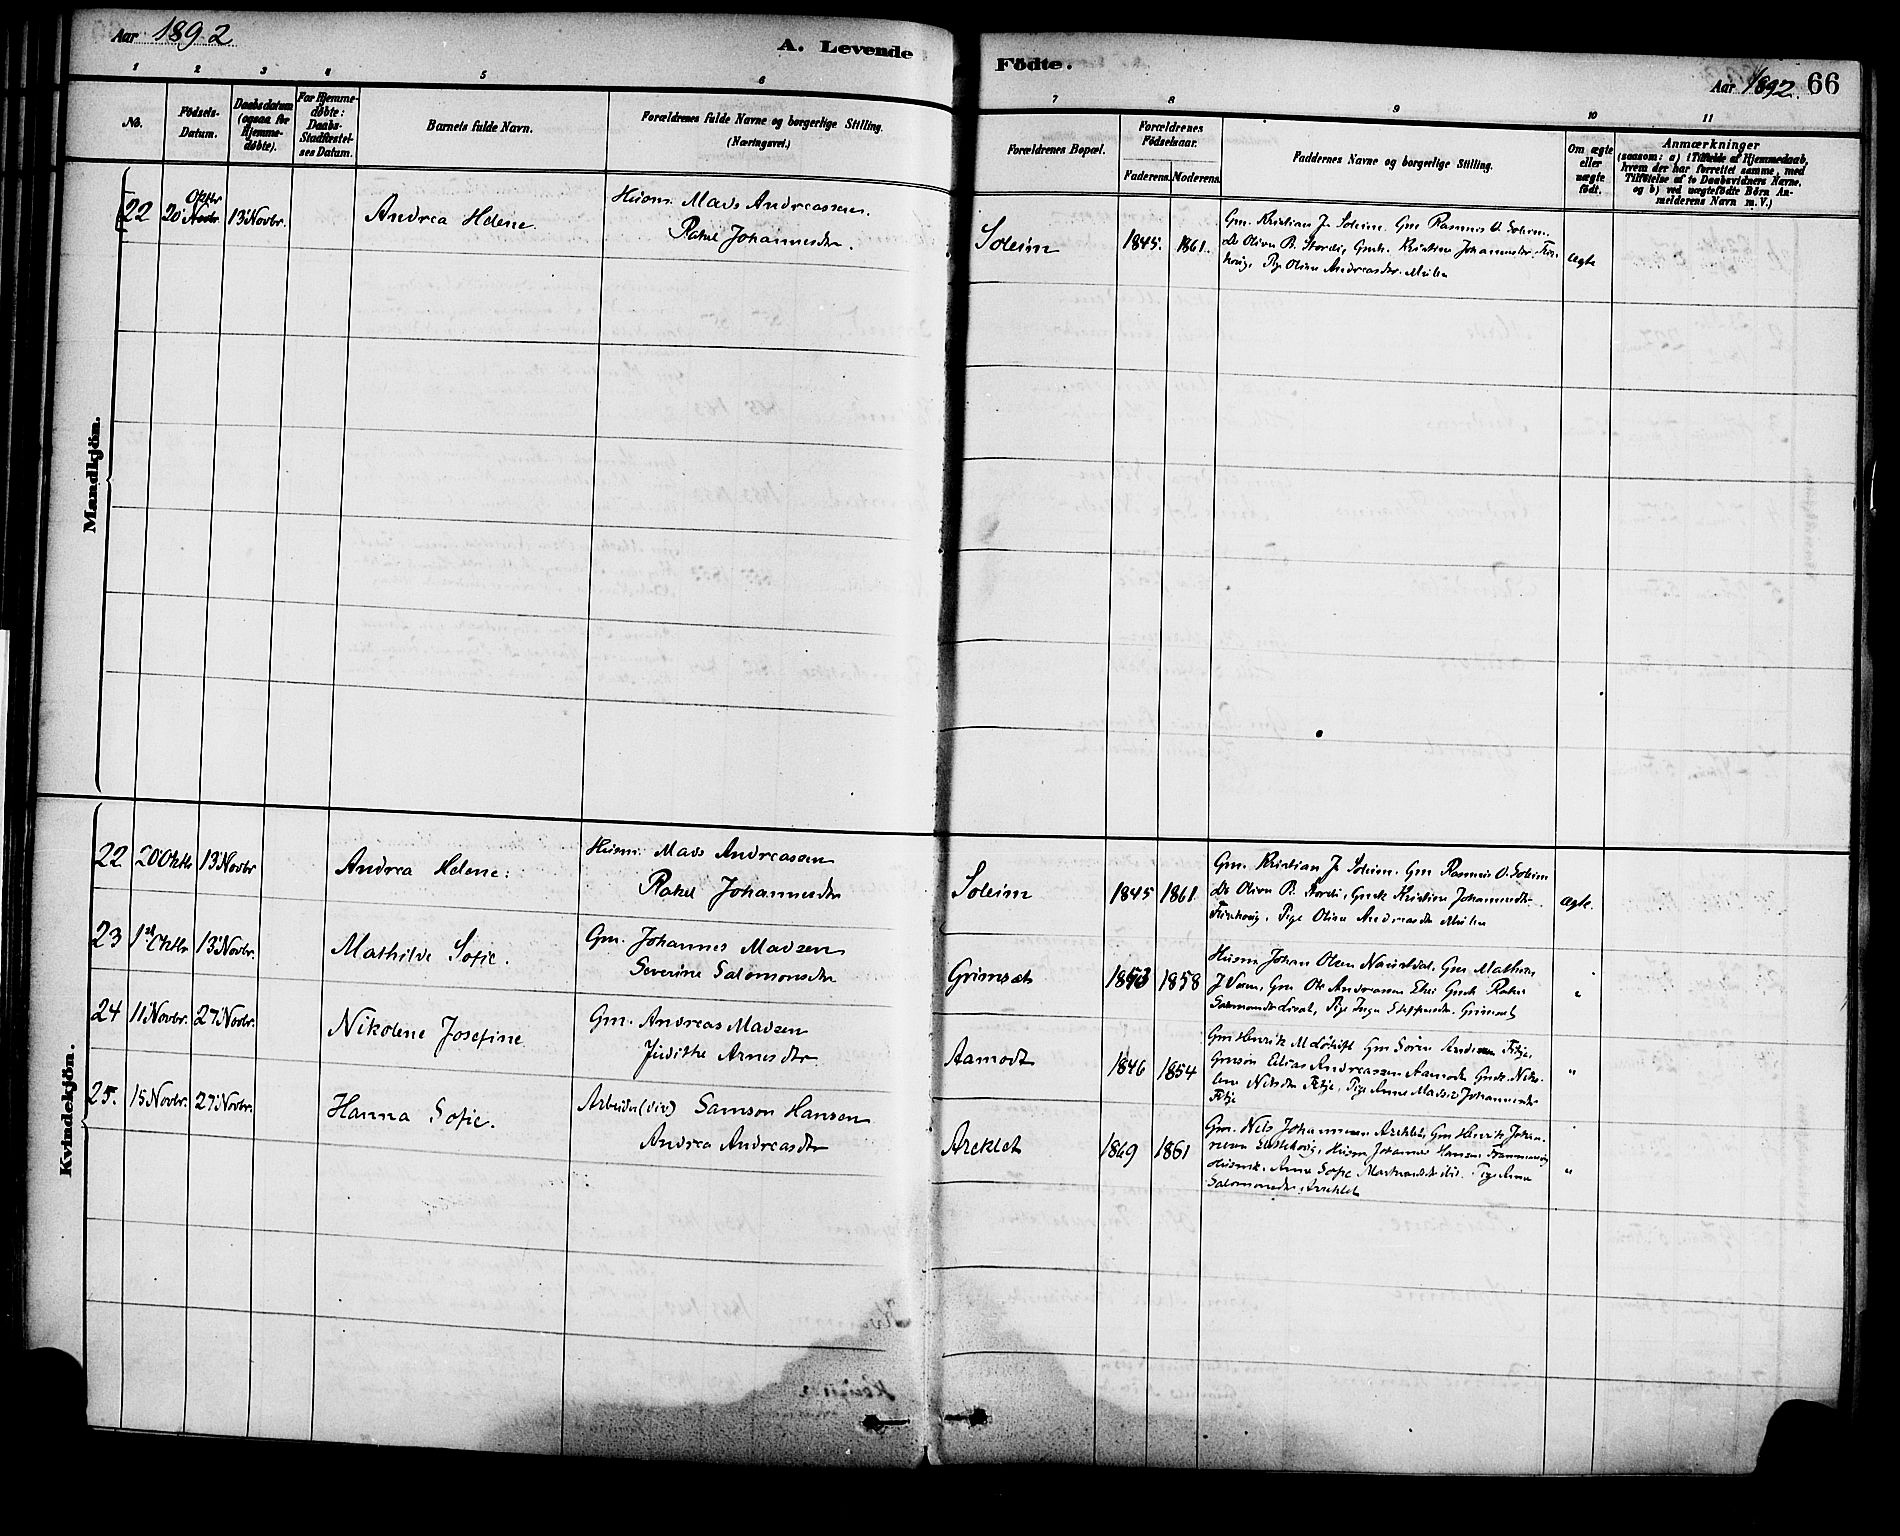 Aar 1892
A. Levende Födte.
Aar 1892. 66
1 2 3 4 5 6 7 8 9 10 11
No.
Födsels-
Datum.
Daabsdatum
(ogsaa for
Hjemme-
døbte).
For Hjemme-
døbte:
Daabs-
Stadfæstel-
ses Datum.
Barnets fulde Navn.
Forældrenes fulde Navne og borgerlige Stilling.
(Næringsvei.)
Forældrenes Bopæl.
Forældrenes
Födselsaar.
Faderens. Moderens.
Faddernes Navne og borgerlige Stilling.
Om ægte
eller
uægte
født.
Anmærkninger
(saasom: a) i Tilfælde af Hjemmedaab,
hvem der har forrettet samme, med
Tilføielse af to Daabsvidners Navne,
og b) ved uægtefødte Börn An-
melderens Navn m. V.)
Mandkjön.
22 20 Oktbr Novbr 13 Novbr. Andrea Helene. Husm. Mads Andreassen.
Rakel Johannesdtr.
Soleim 1845. 1861.
Gm. Kristian J. Soleim. Gm Rasmus O. Soleim.
Do Oliver R. Stordi, Gmk. Kristine Johannesdtr.
Pige Oline Andreasdtr. ægte
Kvindekjön.
22 20 Oktb 13 Novbr Andrea Helene: Husm. Mads Andreassen
Rakel Johannesdtr
Soleim 1845 1861
Gm. Kristian J. Soleim. Gm Rasmus O. Soleim
Do Oliver R. Stordi, Gmk Kristine Johannesdtr.
Pige Oline Andreasdtr ægte.
23 1st Oktbr 13 Novbr. Mathilde Sofie. Gm. Johannes Madsen
Severine Salomonsdtr
Grimsæt 1853 1858
Husm Johan Olsen Gm Mathias
Gm Ole Andreassen Gmk Rakel
Salomonsdtr Pige Inga Grimsæt
24 11 Novbr. 27 Novbr. Nikolene Josefine Gm. Andreas Madsen
Judithe Arnesdtr
Aamodt 1846 1854
Gm Henrik M Gm Sören Andersen
Gmsøn Elias Andreassen Aamodt Gmk. Niko-
line Nilsdtr Pige Anne Johannesdtr "
25. 15 Novbr. 27 Novbr. Hanna Sofie. Arbeider (div) Samson Hansen
Andrea Andreasdtr
Areklet 1869 1861
Gm. Nils Johannessen Areklet, Gm Henrik Johan-
nesen Husm Johannes Hansen
Husmk. Anne Sofie Pige Anna
Salomonsdtr. Areklet "